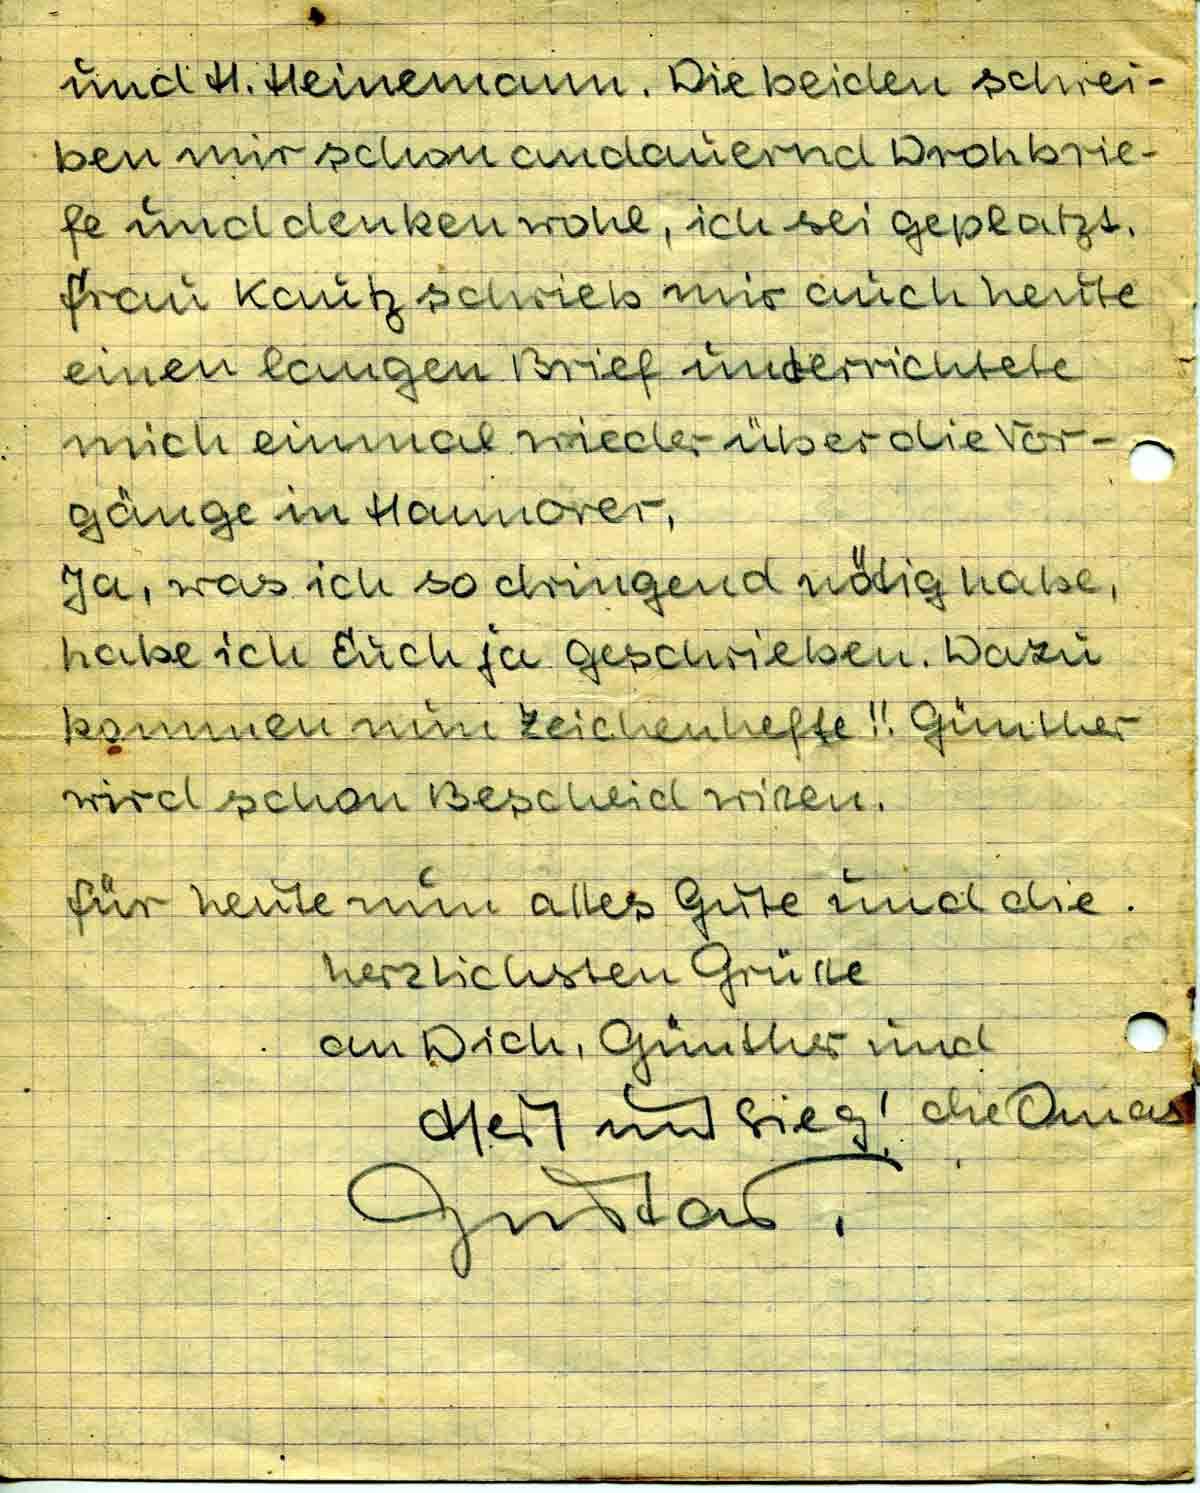 und H. Heinemann. Die beiden schrei-
ben mir schon andauernd Drohbrie-
fe und denken wohl, ich sei geplatzt.
Frau Kautz schrieb mir auch heute
einen langen Brief unterrichtete
mich einmal wieder über die Vor-
gänge in Hannover,
Ja, was ich so dringend nötig habe,
habe ich Euch ja geschrieben. Dazu
kommen nun Zeichenhefte!! Günther
wird schon Bescheid wissen.
Für heute nun alles Gute und die
herzlichsten Grüße
an Dich, Günther und
die Omas
Heil und Sieg!
Gustav.